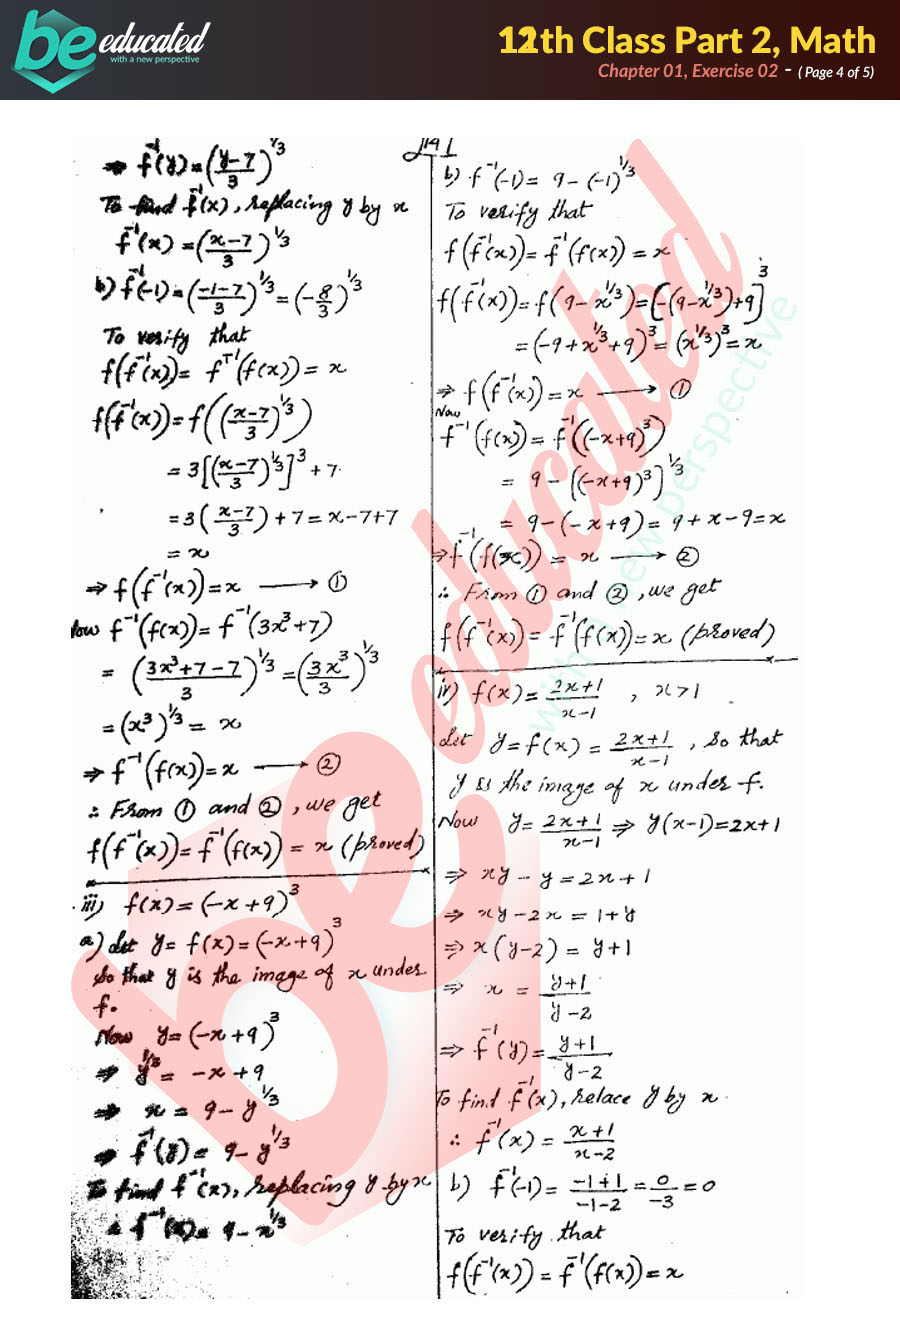 be educated
with a new perspective
12th Class Part 2, Math
Chapter 01, Exercise 02 - ( Page 4 of 5)
⇒ f⁻¹(y) = ((y-7)/3)^1/3
To find f⁻¹(x), replacing y by x
f⁻¹(x) = ((x-7)/3)^1/3
b) f⁻¹(-1) = ((-1-7)/3)^1/3 = (-8/3)^1/3
To verify that
f(f⁻¹(x)) = f⁻¹(f(x)) = x
f(f⁻¹(x)) = f(((x-7)/3)^1/3)
= 3[((x-7)/3)^1/3]³ + 7
= 3((x-7)/3) + 7 = x-7+7
= x
⇒ f(f⁻¹(x)) = x ⟶ ①
Now f⁻¹(f(x)) = f⁻¹(3x³+7)
= ((3x³+7-7)/3)^1/3 = (3x³/3)^1/3
= (x³)^1/3 = x
⇒ f⁻¹(f(x)) = x ⟶ ②
∴ From ① and ②, we get
f(f⁻¹(x)) = f⁻¹(f(x)) = x (proved)
iii) f(x) = (-x+9)³
a) Let y = f(x) = (-x+9)³
so that y is the image of x under
f.
Now y = (-x+9)³
⇒ y^1/3 = -x+9
⇒ x = 9 - y^1/3
⇒ f⁻¹(y) = 9 - y^1/3
To find f⁻¹(x), replacing y by x
∴ f⁻¹(x) = 9 - x^1/3
b) f⁻¹(-1) = 9 - (-1)^1/3
To verify that
f(f⁻¹(x)) = f⁻¹(f(x)) = x
f(f⁻¹(x)) = f(9-x^1/3) = [-(9-x^1/3)+9]³
= (-9+x^1/3+9)³ = (x^1/3)³ = x
⇒ f(f⁻¹(x)) = x ⟶ ①
Now
f⁻¹(f(x)) = f⁻¹((-x+9)³)
= 9 - [(-x+9)³]^1/3
= 9-(-x+9) = 9+x-9 = x
⇒ f⁻¹(f(x)) = x ⟶ ②
∴ From ① and ②, we get
f(f⁻¹(x)) = f⁻¹(f(x)) = x (proved)
iv) f(x) = (2x+1)/(x-1) , x>1
Let y = f(x) = (2x+1)/(x-1), so that
y is the image of x under f.
Now y = (2x+1)/(x-1) ⇒ y(x-1) = 2x+1
⇒ xy - y = 2x+1
⇒ xy - 2x = 1+y
⇒ x(y-2) = y+1
⇒ x = (y+1)/(y-2)
⇒ f⁻¹(y) = (y+1)/(y-2)
To find f⁻¹(x), relace y by x.
∴ f⁻¹(x) = (x+1)/(x-2)
b) f⁻¹(-1) = (-1+1)/(-1-2) = 0/-3 = 0
To verify that
f(f⁻¹(x)) = f⁻¹(f(x)) = x
be educated
with a new perspective